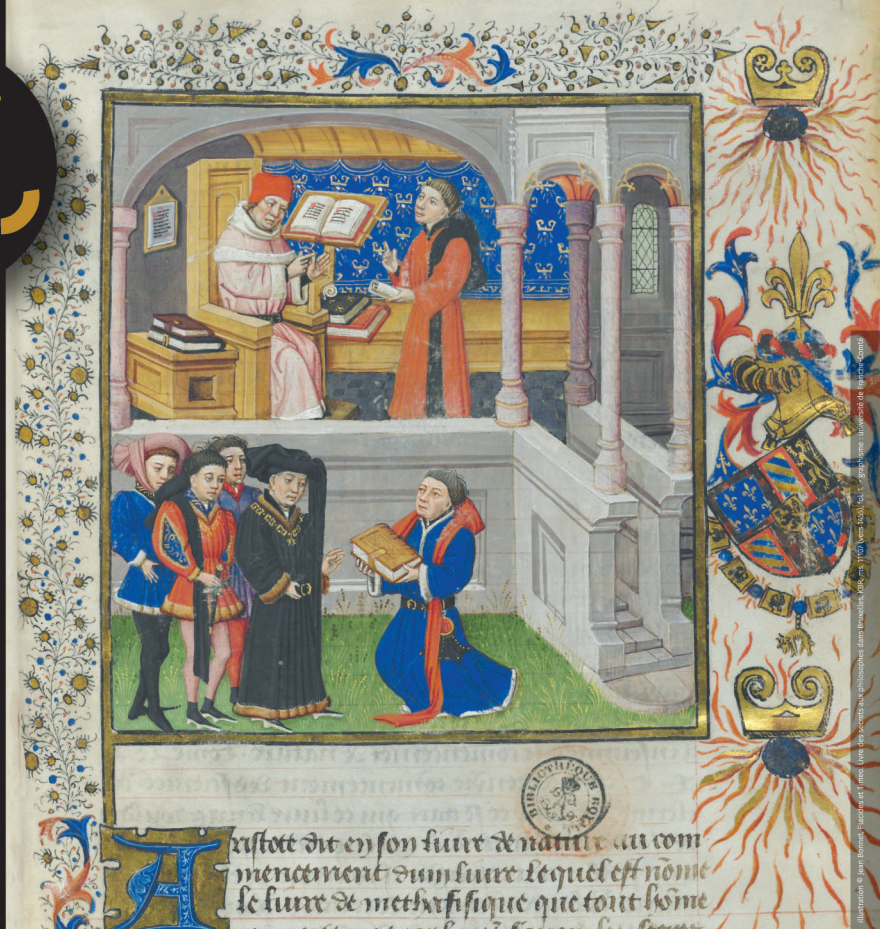 BIBLIOTHÈQUE
Aristote dit en son liure de nature au com
mencement dun liure lequel est nōme
le liure de methafisique que tout hōme
illustration © Jean Bonnet, Placides et Timeo. Livre des secrets aux philosophes dans Bruxelles, KBR, ms. 11107 (vers 1450), fol. 1. - graphisme : université de Franche-Comté